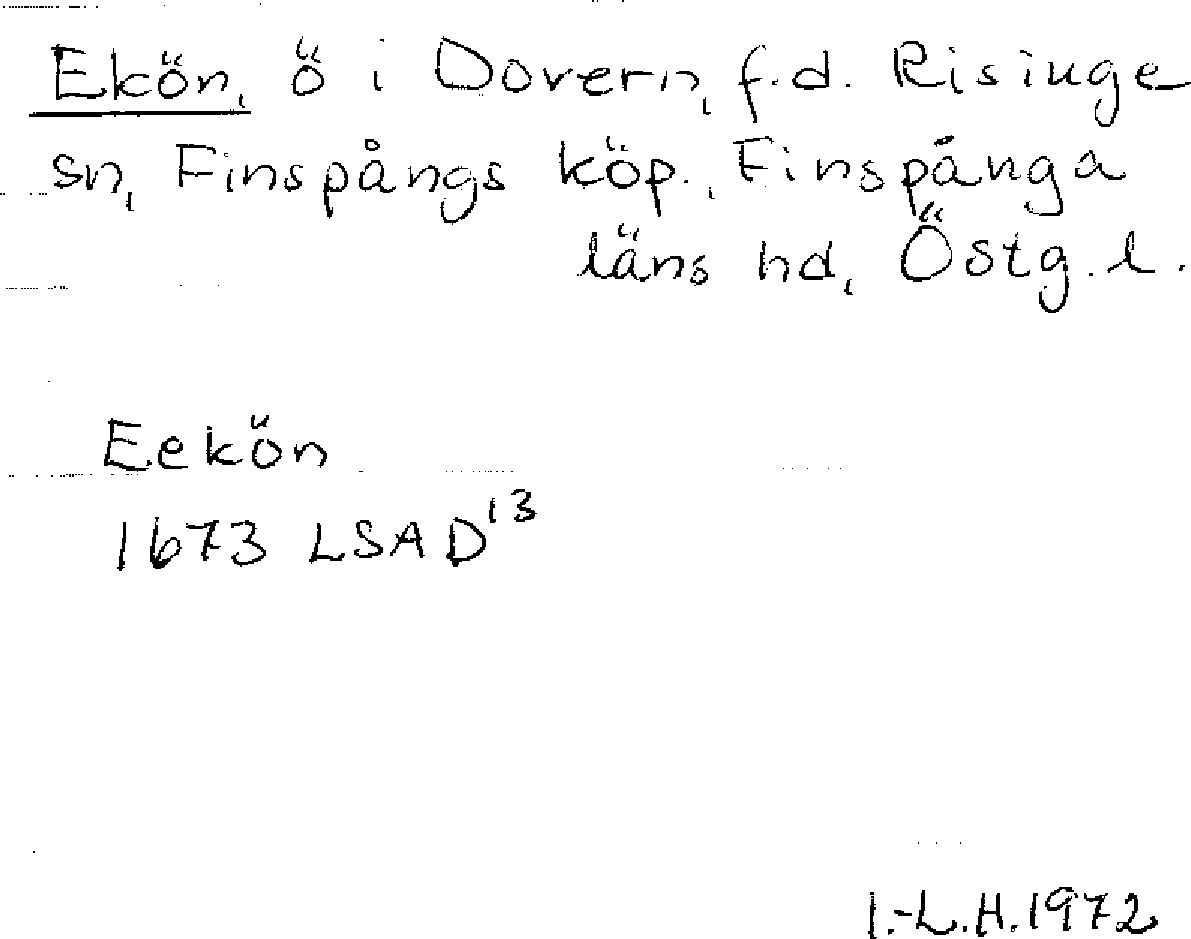 Ekön, ö i Dovern, f.d. Risinge
sn, Finspångs köp., Finspånga
läns hd, Östg. l.
Eekön
1673 LSA D¹³
I.-L.H. 1972